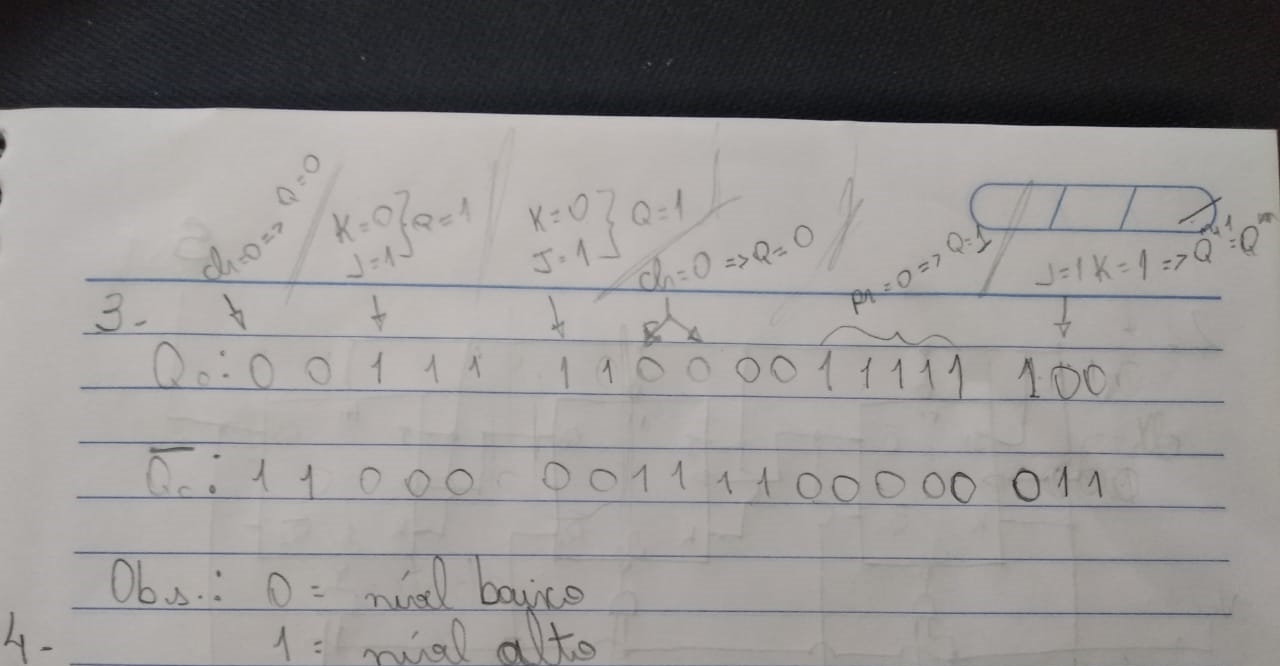 clr=0=> Q=0
K=0
J=1 } Q=1
K=0
J=1 } Q=1
clr=0 => Q=0
pr=0=> Q=1
J=1 K=1 => Qⁿ⁺¹=Q̅ⁿ
3-
Q₀: 0 0 1 1 1 1 1 0 0 0 0 1 1 1 1 1 1 0 0
Q̅₀: 1 1 0 0 0 0 0 1 1 1 1 0 0 0 0 0 0 1 1
Obs.: 0 = nível baixo
4- 1 = nível alto